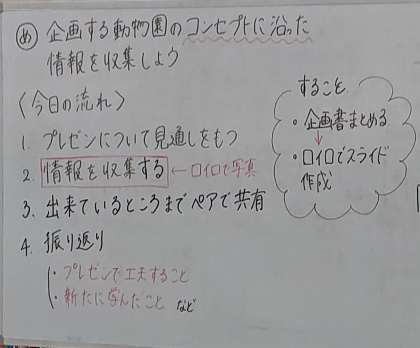 め 企画する動物園のコンセプトに沿った
情報を収集しよう
〈今日の流れ〉
1. プレゼンについて見通しをもつ
2. 情報を収集する ←ロイロで写真
3. 出来ているところまでペアで共有
4. 振り返り
・プレゼンで工夫すること
・新たに学んだこと など
すること
・企画書まとめる
↓
・ロイロでスライド
作成